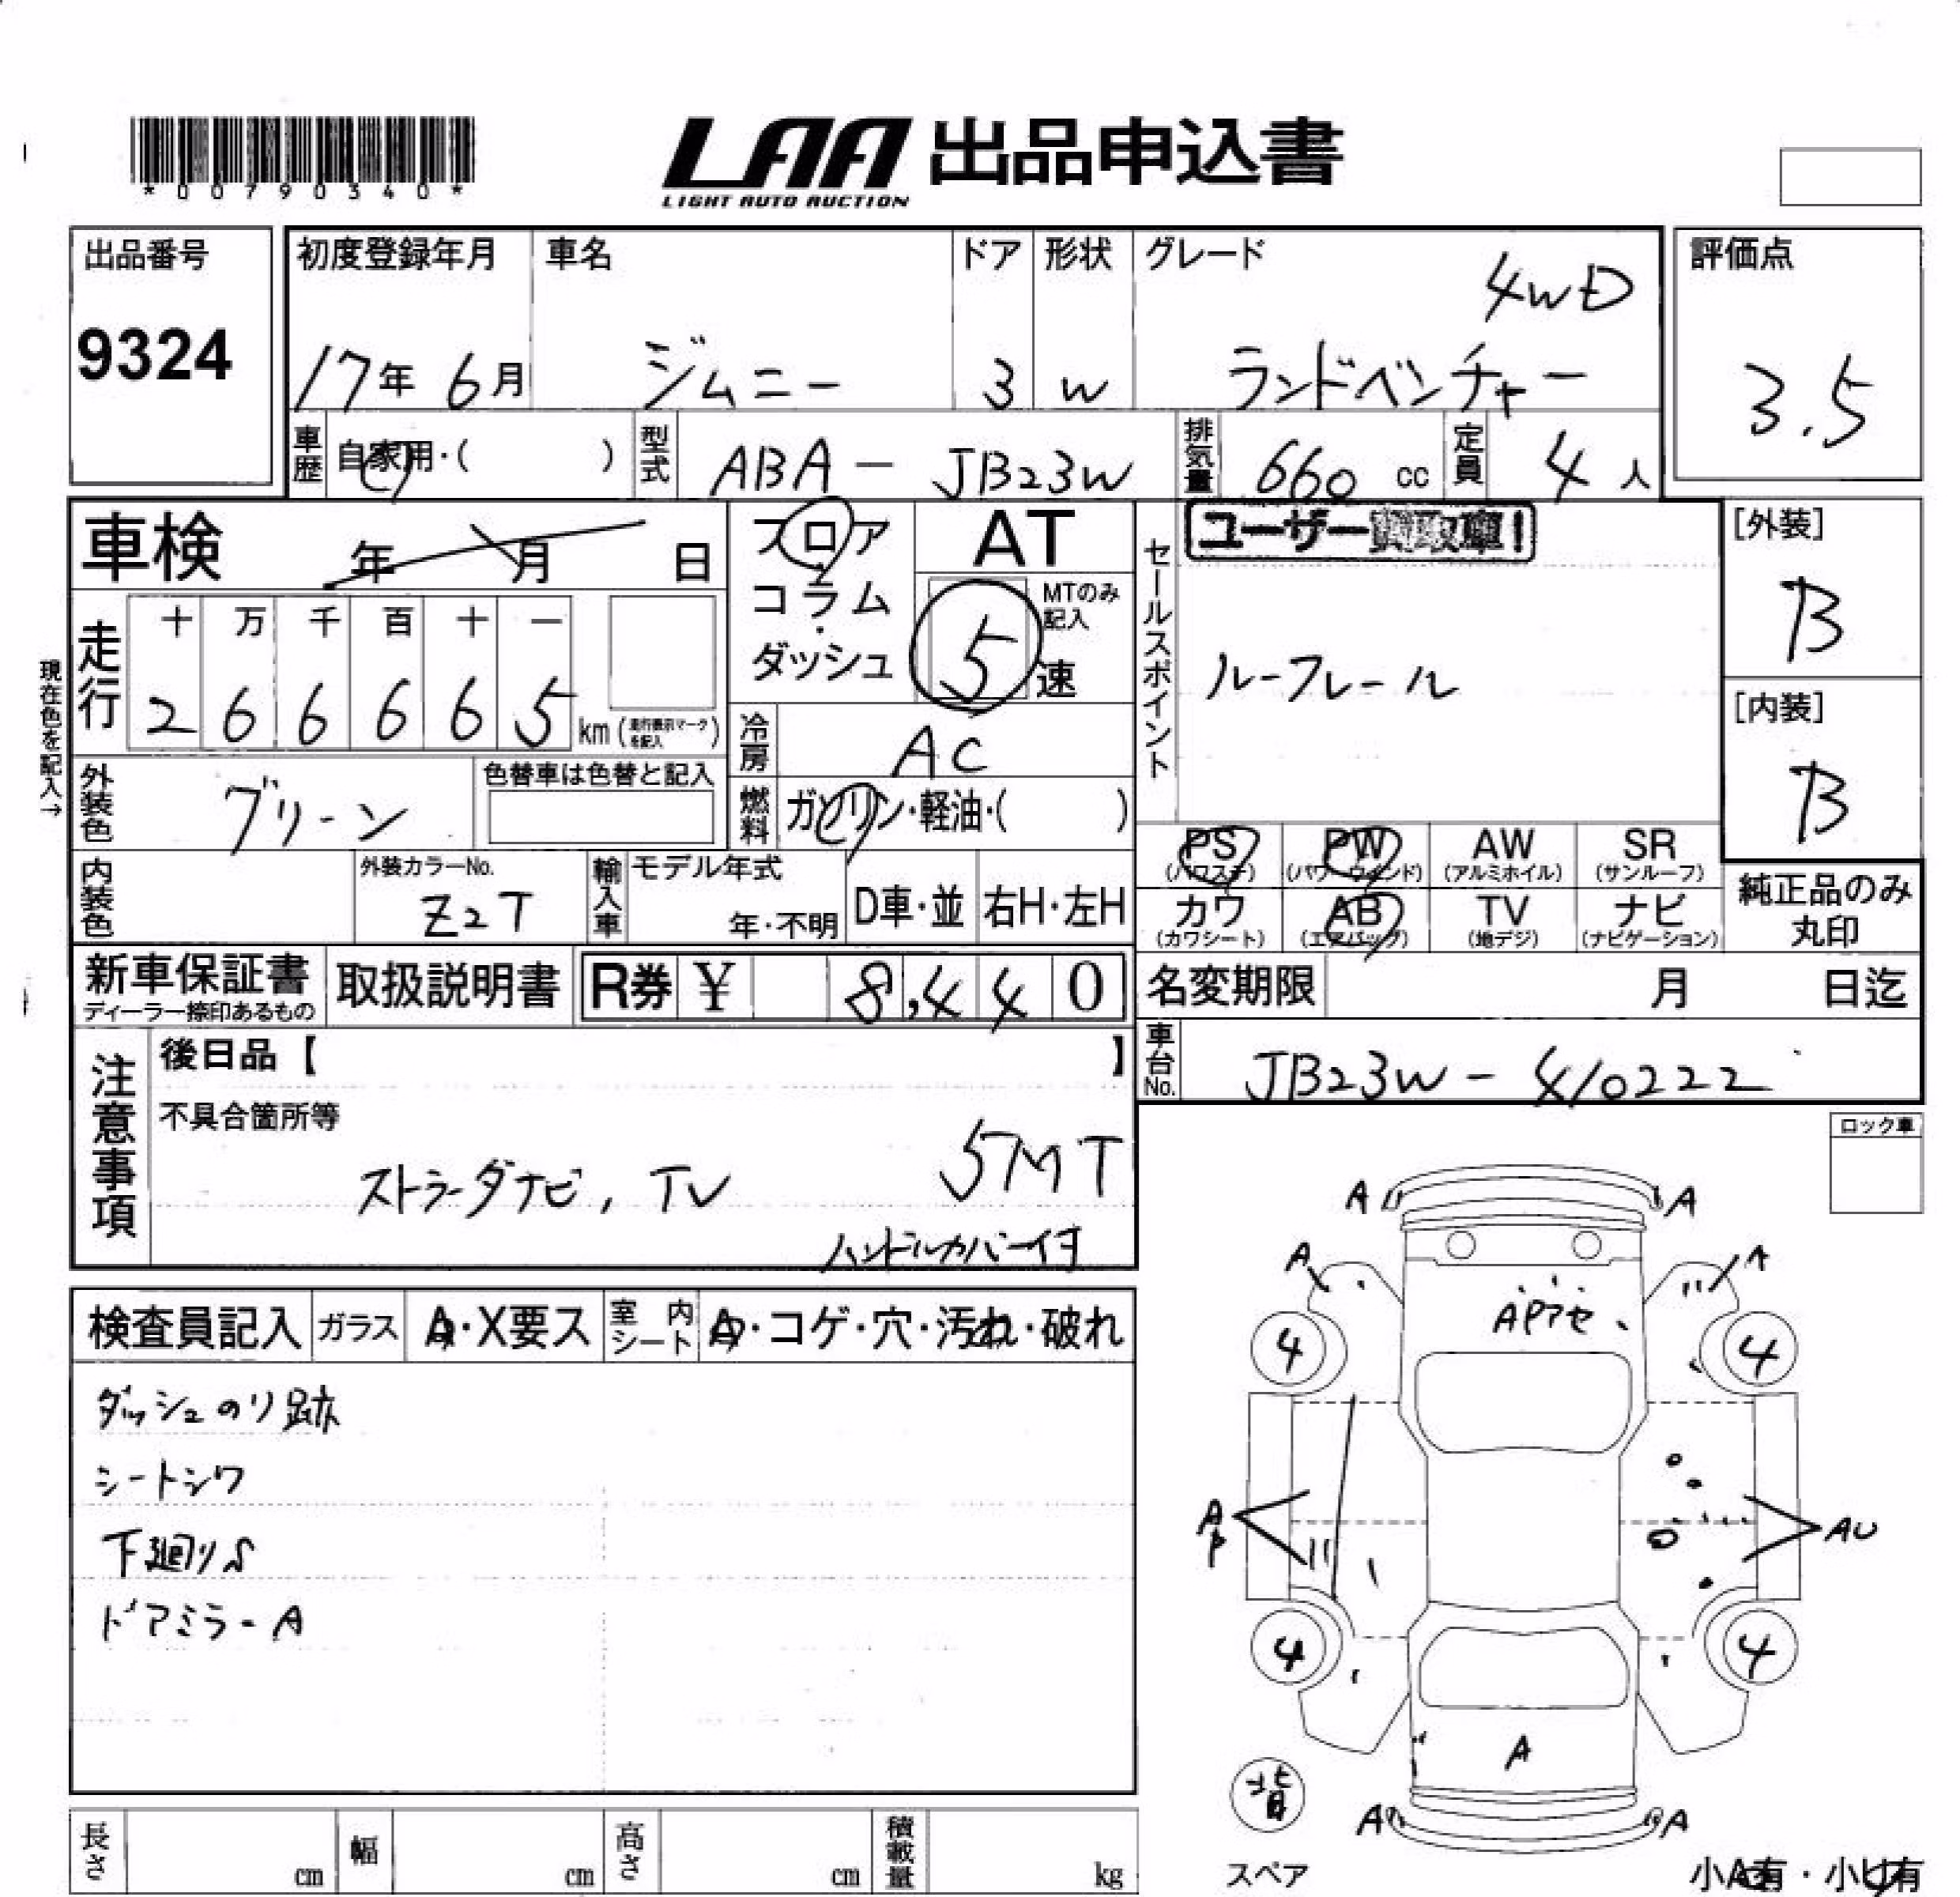 *00790340*
LAA 出品申込書
LIGHT AUTO AUCTION
出品番号
9324
初度登録年月
17年 6月
車名
ジムニー
ドア
3
形状
W
グレード
4WD
ランドベンチャー
評価点
3.5
車歴 自家用・( )
型式 ABA - JB23W
排気量 660 cc
定員 4 人
車検 年 月 日
フロア・コラム・ダッシュ
AT
MTのみ記入
5 速
セールスポイント
ユーザー買取車!
ルーフレール
[外装]
B
[内装]
B
現在色を記入→
走行
十 万 千 百 十 一
2 6 6 6 6 5 km (走行表示マークを記入)
冷房 AC
外装色 グリーン
色替車は色替と記入
燃料 ガソリン・軽油・( )
PS (パワステ)
PW (パワーウィンド)
AW (アルミホイル)
SR (サンルーフ)
カワ (カワシート)
AB (エアバッグ)
TV (地デジ)
ナビ (ナビゲーション)
純正品のみ
丸印
内装色
外装カラーNo.
Z2T
輸入車
モデル年式
年・不明
D車・並
右H・左H
新車保証書
ディーラー捺印あるもの
取扱説明書
R券 ¥ 8,440
名変期限 月 日迄
車台No. JB23W - 410222
注意事項
後日品【 】
不具合箇所等
ストラーダナビ, TV 5MT
ハンドルカバーイタ
ロック車
検査員記入
ガラス A・X要ス
室内シート A・コゲ・穴・汚れ・破れ
ダッシュのり跡
シートシワ
下廻りS
ドアミラーA
A A
A A
APアセ
4 4
AP AU
4 4
A
背
スペア
A A
小A有・小U有
長さ cm
幅 cm
高さ cm
積載量 kg